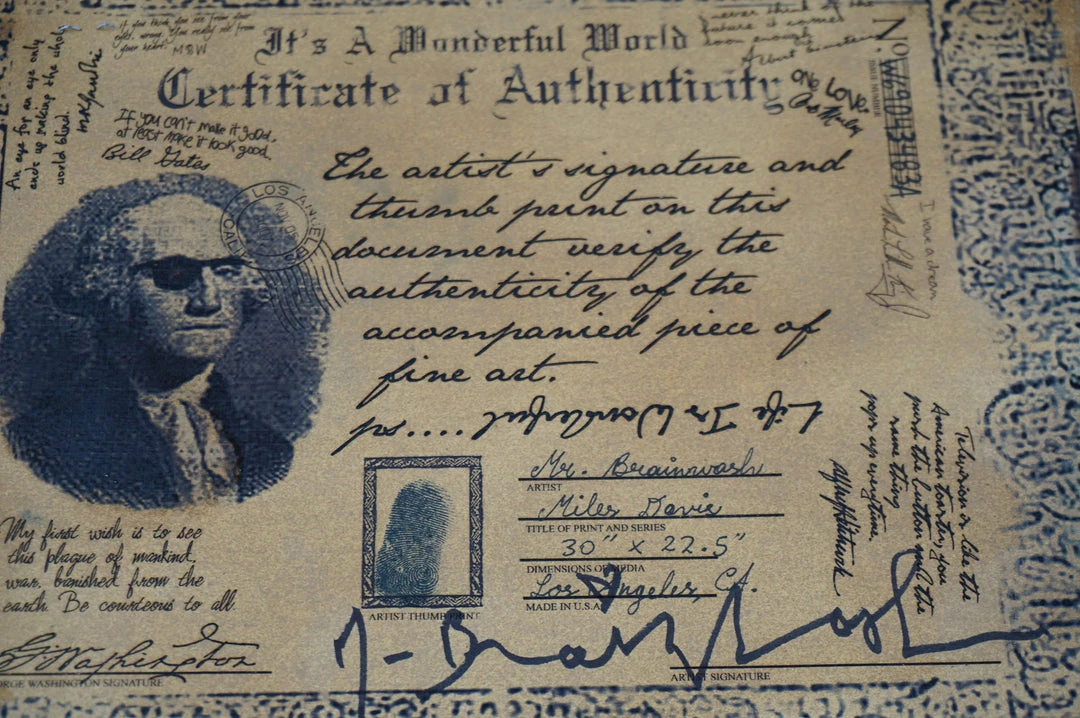 It's A Wonderful World
Certificate of Authenticity
The artist's signature and
thumb print on this
document verify the
authenticity of the
accompanied piece of
fine art.
ps..... Life Is Wonderful
An eye for an eye only
ends up making the whole
world blind.
If you can't make it good,
at least make it look good.
Bill Gates
never think of the
future it comes
soon enough
Albert Einstein
One Love.
Bob Marley
No.
ISSUE NUMBER
I have a dream
LOS ANGELES
CALIF
My first wish is to see
this plague of mankind,
war, banished from the
earth. Be courteous to all.
G Washington
GEORGE WASHINGTON SIGNATURE
ARTIST THUMB PRINT
Mr. Brainwash
ARTIST
Miles Davis
TITLE OF PRINT AND SERIES
30" x 22.5"
DIMENSIONS OF MEDIA
Los Angeles, CA.
MADE IN U.S.A
ARTIST SIGNATURE
Television is like the
American toaster, you
push the button and the
same thing
pops up everytime.
Alfred Hitchcock